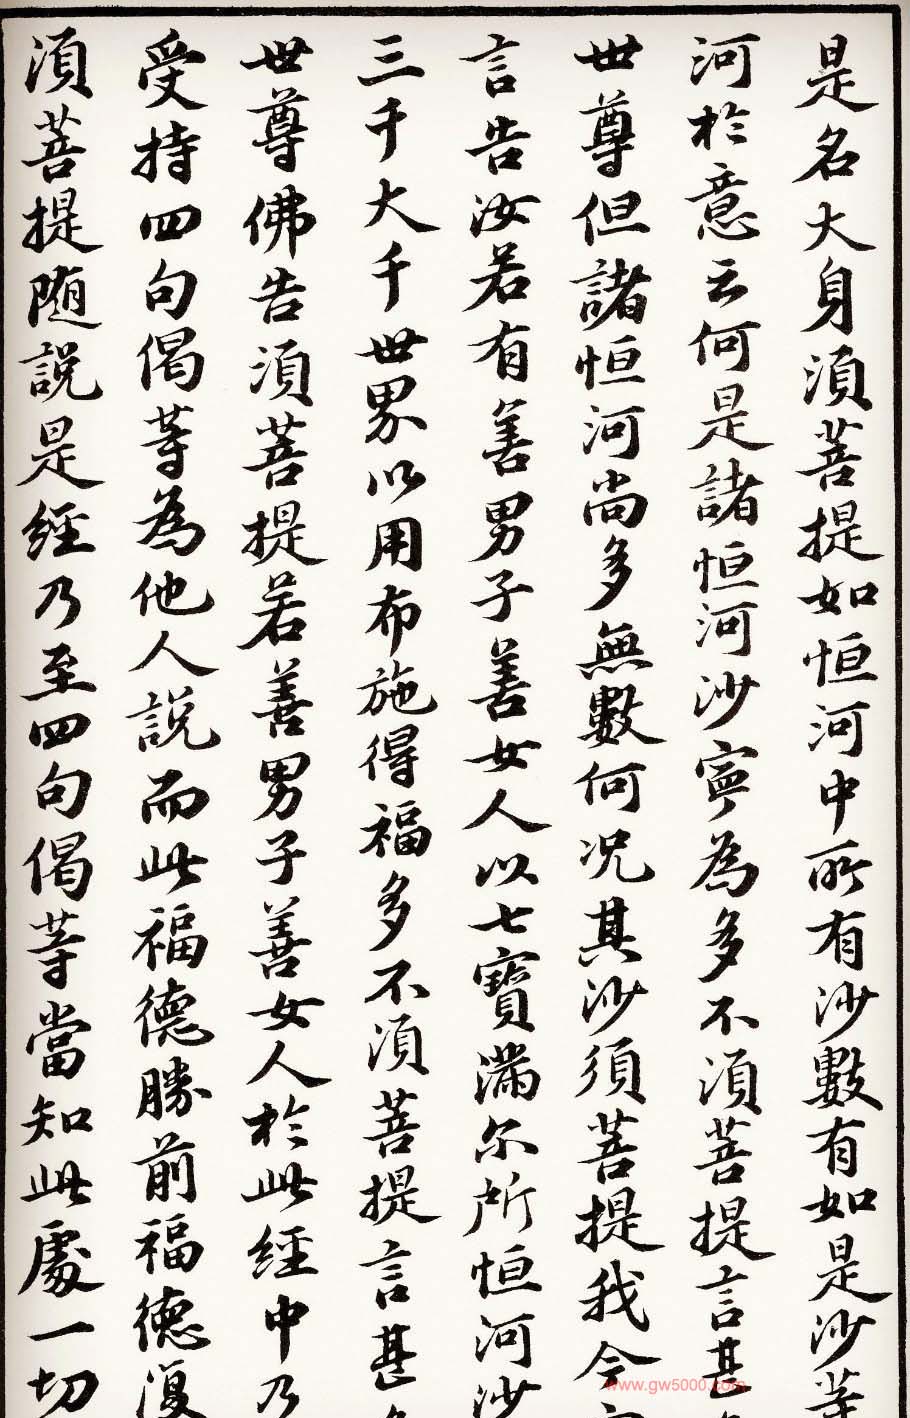 是名大身須菩提如恒河中所有沙數有如是沙等
河於意云何是諸恒河沙寧為多不須菩提言甚
世尊但諸恒河尚多無數何况其沙須菩提我今
言告汝若有善男子善女人以七寶滿尔所恒河沙
三千大千世界以用布施得福多不須菩提言甚
世尊佛告須菩提若善男子善女人於此經中乃
受持四句偈等為他人說而此福德勝前福德復
須菩提随說是經乃至四句偈等當知此處一切
www.gw5000.com